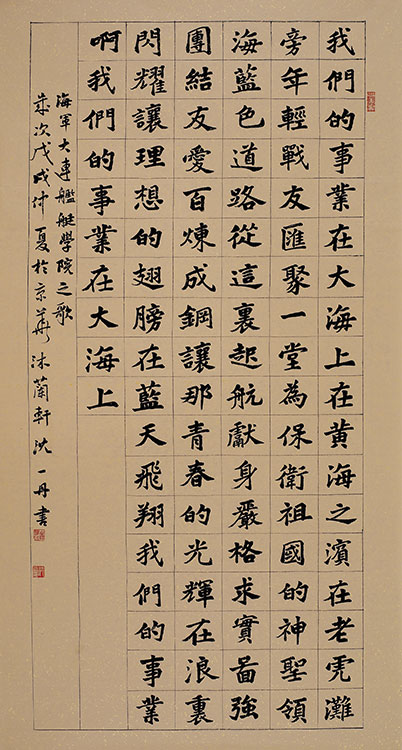 我們的事業在大海上在黄海之濱在老虎灘
旁年輕戰友匯聚一堂為保衛祖國的神聖領
海藍色道路從這裏起航獻身嚴格求實圖強
團結友愛百煉成鋼讓那青春的光輝在浪裏
閃耀讓理想的翅膀在藍天飛翔我們的事業
啊我們的事業在大海上
海軍大連艦艇學院之歌
歲次戊戌仲夏於京華沐蘭軒沈一丹書